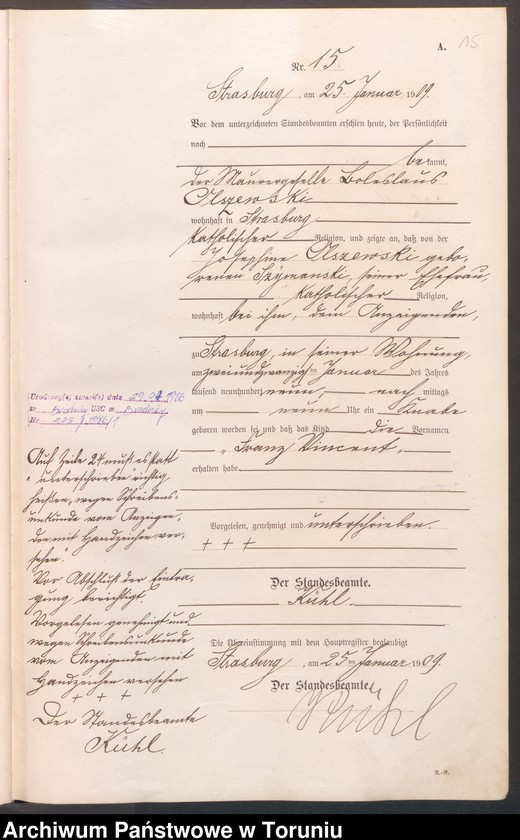 A.
15
Nr. 15.
Strasburg, am 25. Januar 1909.
Vor dem unterzeichneten Standesbeamten erschien heute, der Persönlichkeit
nach
bekannt,
der Maurergeselle Boleslaus
Olszewski
wohnhaft in Strasburg
katholischer Religion, und zeigte an, daß von der
Josephine Olszewski gebo-
renen Szymanski, seiner Ehefrau,
katholischer Religion,
wohnhaft bei ihm, dem Anzeigenden,
zu Strasburg, in seiner Wohnung,
am zweiundzwanzigsten Januar des Jahres
tausend neunhundert neun, nach mittags
um neun Uhr ein Knabe
geboren worden sei und daß das Kind die Vornamen
"Franz Vincent"
erhalten habe.
Vorgelesen, genehmigt und unterschrieben.
+ + +
Der Standesbeamte.
Kühl.
Die Übereinstimmung mit dem Hauptregister beglaubigt
Strasburg, am 25. Januar 1909.
Der Standesbeamte.
Kühl
B.-R.
29.04.1986
USC w Brodnicy
Nr 205/1986
Auf Zeile 24 muß es statt
"unterschrieben" richtig
heißen, wegen Schreibens-
unkunde vom Anzeigen-
den mit Handzeichen ver-
sehen".
Vor Abschluß der Eintra-
gung berichtigt.
Vorgelesen genehmigt und
wegen Schreibensunkunde
vom Anzeigenden mit
Handzeichen versehen
+ + +
Der Standesbeamte
Kühl.
Archiwum Państwowe w Toruniu